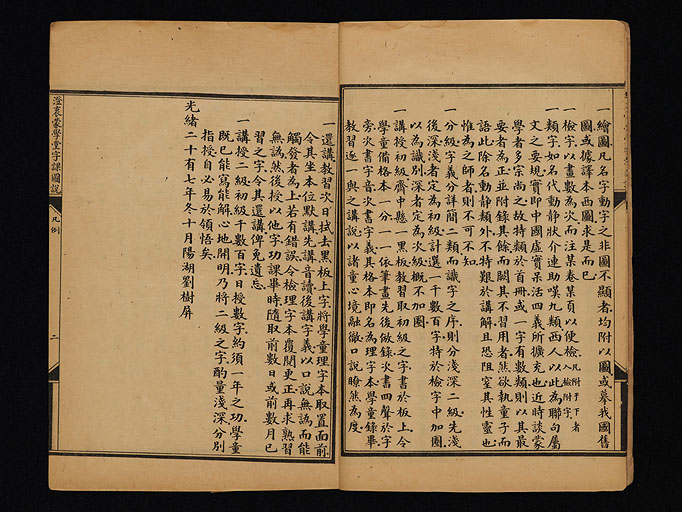 一繪圖凡名字動字之非圖不顯者均附以圖或摹我國舊
圖或據譯本西圖求是而已
一檢字以畫數為次而注某卷某頁以便檢凡附于下者入檢附字
一類字如名代動靜狀介連助嘆九類西人以此為聯句屬
文之要規實即中國虛實呆活四義所擴充也近時談蒙
學者多宗尚之故特類於首冊或一字有數類則以其最
要者為正並附錄其餘而闕其不習用者然欲執童子而
語此除名動靜類外不特艱於講解且恐阻窒其性靈也
惟為之師者則不可不知
一分級字義分詳簡二類而識字之序則分淺深二級先淺
後深淺者定為初級計選一千數百字特於檢字中加圈
以為識別深者定為次級概不加圈
一講授初級齋中縣一黑板教習取初級之字書於板上令
學童備格本一分一一依筆畫先後倣錄一通畫四聲於字
旁次書字音次書字義其格本即名為理字本學童錄畢
教習逐一與之講說以諸童心境融徹口說瞭然為度
一還講教習次日拭去黑板上字將學童理字本取置面前
令其坐本位默講先講音讀後講字義以口說無譌而能
觸發者為上若有錯誤令檢理字本覆閱更正再求熟習
無譌然後授以他字功課畢時隨取前數日或前數月已
習之字令其還講俾免遺忘
一講授二級初級千數百字日授數字約須一年之功學童
既已能寫能解心地開明乃將二級之字酌量淺深分別
指授自必易於領悟矣
光緒二十有七年冬十月陽湖劉樹屏
澄衷蒙學堂字課圖說
凡例
二